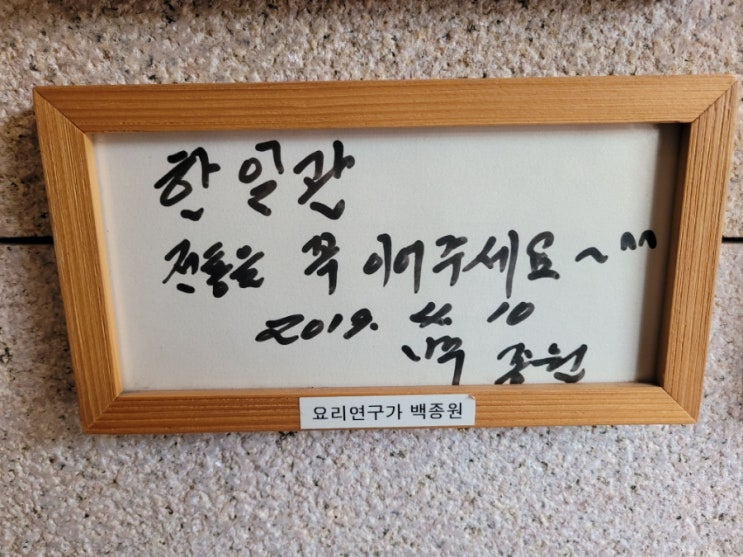 한일관
전통을 꼭 이어주세요~^^
2019. 4. 10
백종원
요리연구가 백종원